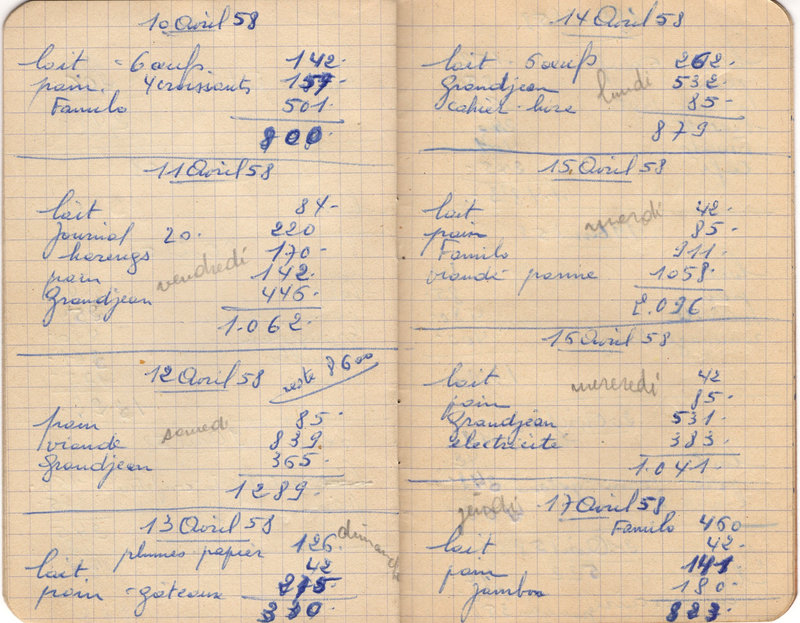 10 Avril 58
lait - 6 œufs 142-
pain. 4 croissants 157-
Familo 501-
800-
11 Avril 58
lait 84-
Journal 20. 220
harengs 170-
vendredi
pain 142-
Grandjean 446-
1.062-
12 Avril 58 reste 8600
pain 85-
samedi
viande 839-
Grandjean 365-
1289-
13 Avril 58
dimanche
plumes papier 126-
lait 42
pain - gâteaux
14 Avril 58
lait - 5 œufs 262-
Grandjean 532-
lundi
cahier - livre 85-
879
15 Avril 58
lait 42-
mardi
pain 85-
Familo 911-
viande panne 1058-
2.096-
16 Avril 58
lait 42
mercredi
pain 85-
Grandjean 531-
électricité 383-
1.041-
jeudi
17 Avril 58
Familo 460
lait 42-
pain 141-
jambon 180-
823-